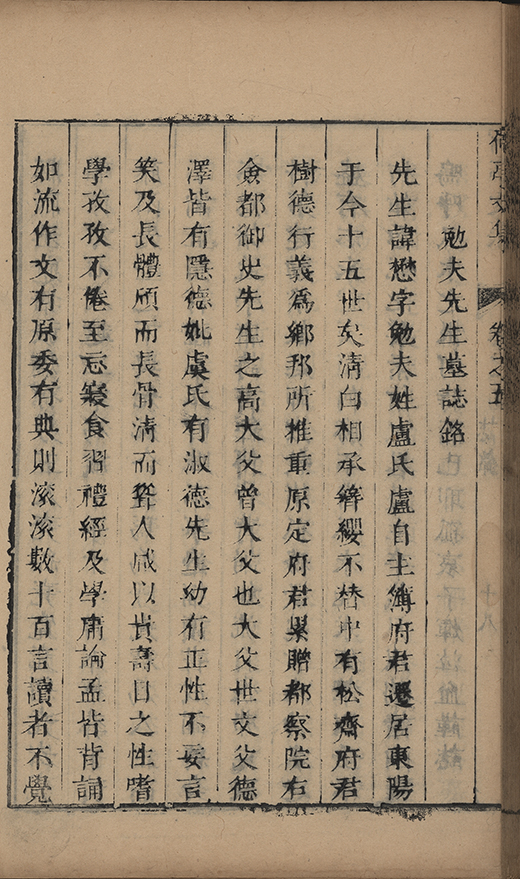 荷亭文集 卷之五
勉夫先生墓誌銘
先生諱懋字勉夫姓盧氏盧自主簿府君遷居東陽
于今十五世矣淸白相承簪纓不替中有松齋府君
樹德行義爲鄉邦所推重原定府君累贈都察院右
僉都御史先生之高大父曾大父也大父世文父德
澤皆有隱德妣虞氏有淑德先生幼有正性不妄言
笑及長體頎而長骨淸而聳人咸以貴壽目之性嗜
學孜孜不倦至忘寢食習禮經及學庸論孟皆背誦
如流作文有原委有典則滚滚數十百言讀者不覺